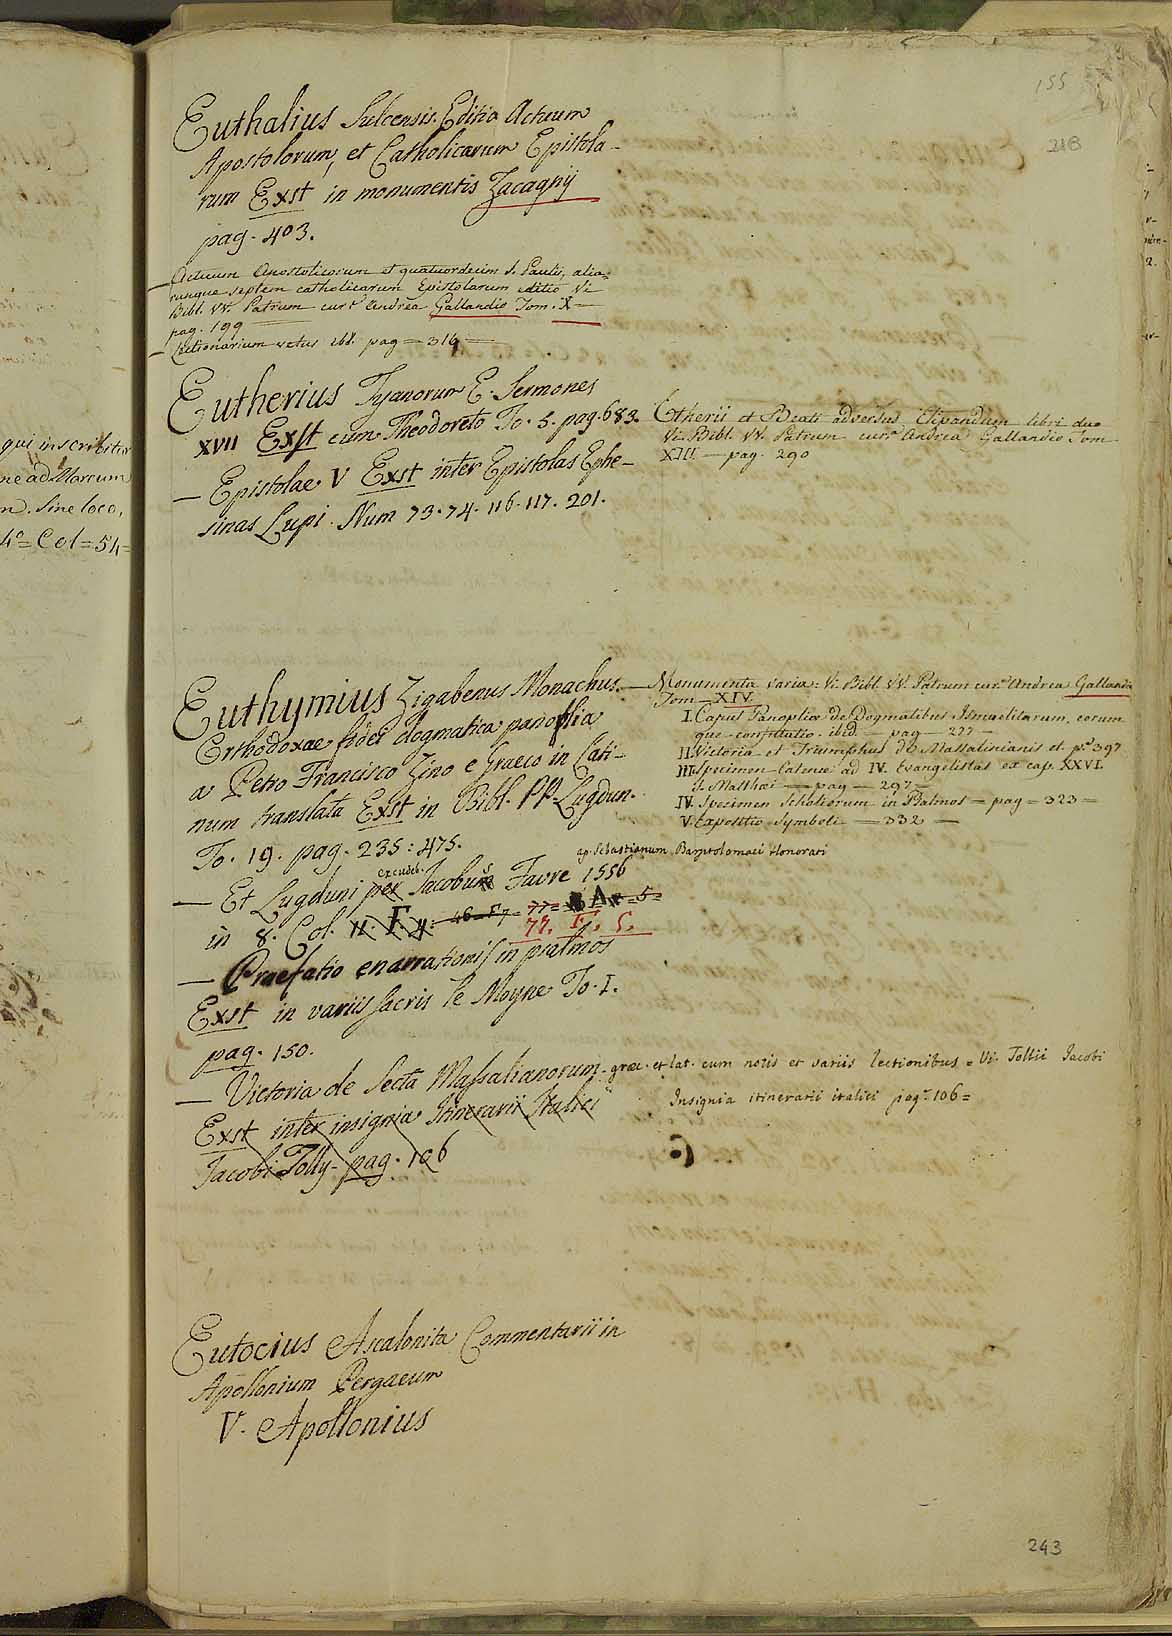 155
21B
Euthalius Sulcensis. Editio Actuum
Apostolorum, et Catholicarum Epistola-
rum Exst in monumentis Zacagnij
pag. 403.
— Actuum Apostolicorum et quatuordecim S. Pauli, alia-
rumque septem catholicarum Epistolarum editio Vi
Bibl. VV. Patrum curᵉ Andrea Gallandio Tom. X —
pag. 199
— Lectionarium vetus ibd. pag — 316 —
Eutherius Tyanorum E. Sermones
XVII Exst cum Theodoreto To. 5. pag. 683.
— Epistolae V Exst inter Epistolas Ephe-
sinas Lupi. Num 73. 74. 116. 117. 201.
Etherii et Beati adversus Elipandum libri duo
Vi. Bibl. VV. Patrum curᵉ Andrea Gallandio Tom
XIII — pag. 290
Euthymius Zigabenus Monachus.
Orthodoxae fidei dogmatica panoplia
a Petro Francisco Zino e Graeco in Lati-
num translata Exst in Bibl. PP. Lugdun.
To. 19. pag. 235: 475.
— Monumenta varia: Vi. Bibl. VV. Patrum curᵉ Andrea Gallandio
Tom — XIV.
I. Caput Panopliæ de Dogmatibus Ismaelitarum, eorum
que confutatio. ibid. — pag — 277 —
II. Victoria et Triumphus de Massalinianis et pᵉ 397
III. Specimen Catenæ ad IV. Evangelistas ex cap. XXVI.
S. Matthæi — pag — 297
IV. Specimen Scholiorum in Psalmos — pag = 323 =
V. Expositio Symboli — 332 —
ap. Sebastianum Bartolomaei Honorati
excudeb.
— Et Lugduni per Jacobus Favre 1556
in 8. Col. 11. F. 4. 46 = F7 = 77 = A = 5 =
77. F. 5.
— Praefatio enarrationis in psalmos
Exst in variis sacris le Moyne To. I.
pag. 150.
— Victoria de Secta Massalianorum. græc. et lat. cum notis et variis lectionibus = Vi. Tollii Jacobi
Insignia itinerarii italici pagᵉ 106 =
Exst inter insignia Itinerarii Italici
Jacobi Tolly. pag. 106
Eutocius Ascalonita Commentarii in
Apollonium Pergaeum
V. Apollonius
243
qui inscribitur
ne ad Marcum
n. Sine loco,
4° = Col = 54 =